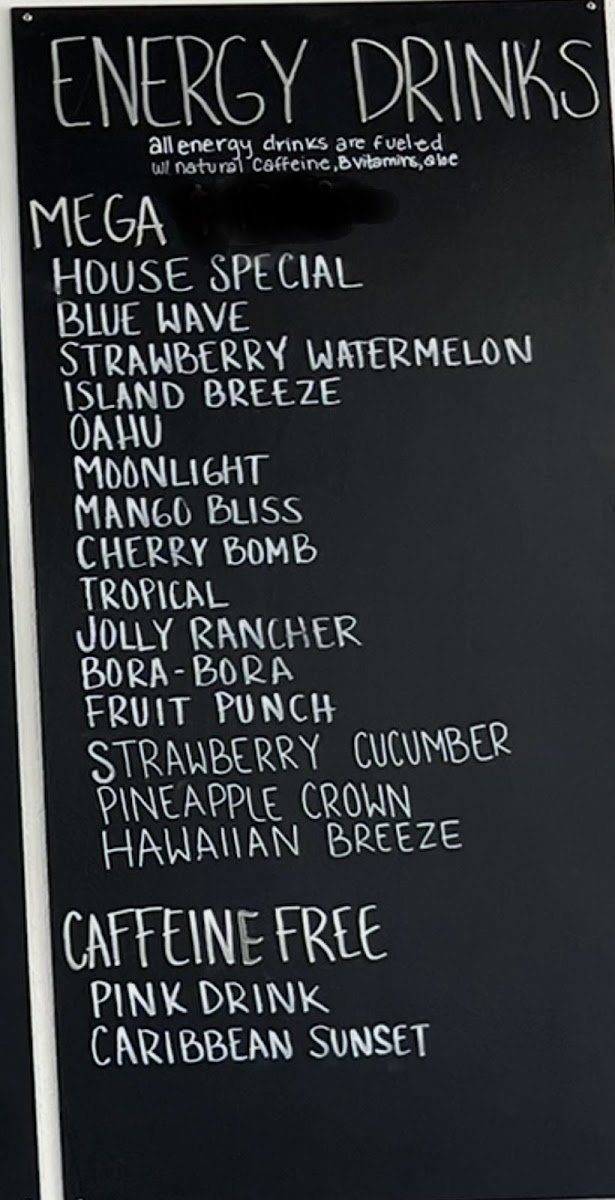 ENERGY DRINKS
all energy drinks are fueled
w/ natural caffeine, B vitamins, aloe
MEGA
HOUSE SPECIAL
BLUE WAVE
STRAWBERRY WATERMELON
ISLAND BREEZE
OAHU
MOONLIGHT
MANGO BLISS
CHERRY BOMB
TROPICAL
JOLLY RANCHER
BORA-BORA
FRUIT PUNCH
STRAWBERRY CUCUMBER
PINEAPPLE CROWN
HAWAIIAN BREEZE
CAFFEINE FREE
PINK DRINK
CARIBBEAN SUNSET